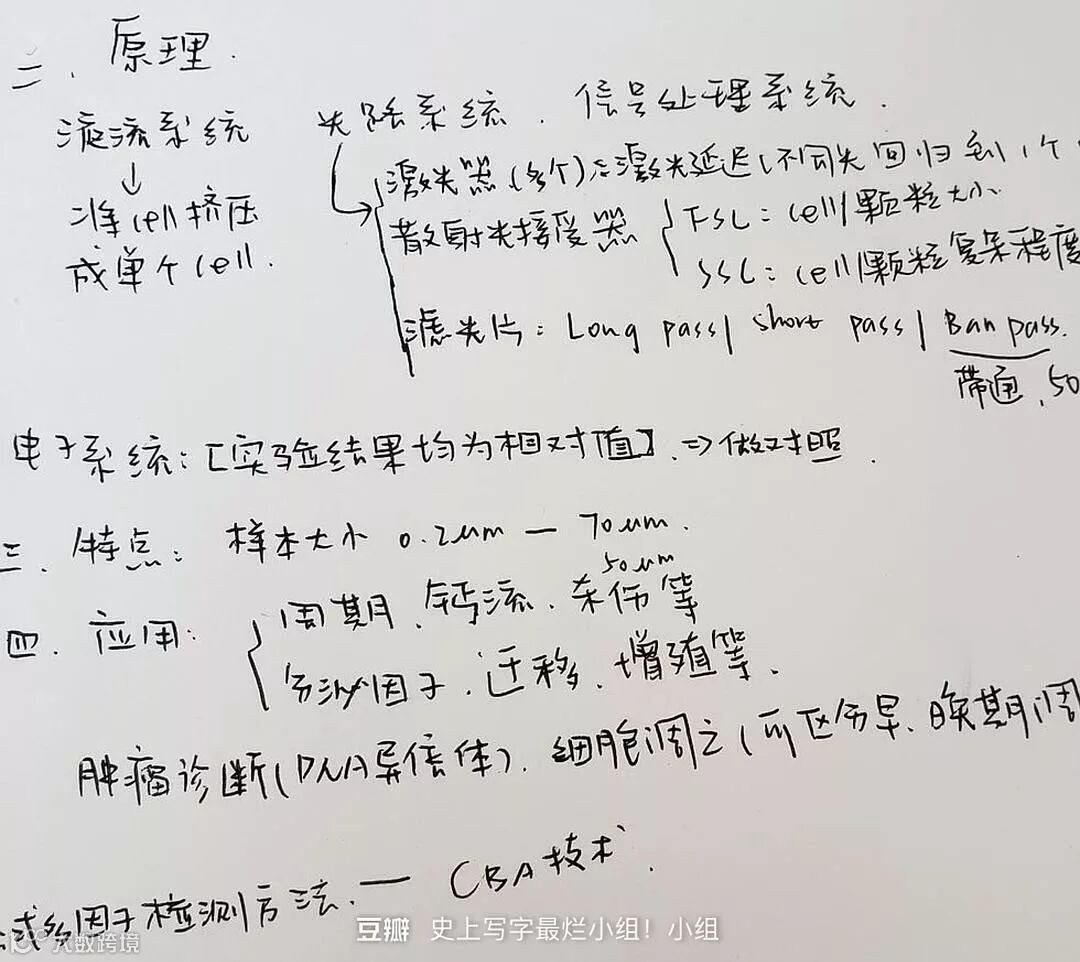 二、原理.
液流系统 光路系统、信号处理系统.
↓
将cell挤压
成单个cell.
激光器(多个)=激光延迟(不同光回归到1个
散射光接受器 { FSC: cell/颗粒大小
SSC: cell/颗粒复杂程度
滤光片: Long pass/ short pass/ Ban pass.
带通、50
电子系统:[实验结果均为相对值]. ⇒做对照.
三、特点: 样本大小 0.2um — 70um.
50um
四、应用: { 周期、钙流、杀伤等
分泌因子、迁移、增殖等.
肿瘤诊断(DNA异倍体)、细胞凋亡(可区分早、晚期凋
式多因子检测方法. — CBA技术.
豆瓣 史上写字最烂小组!小组
大数跨境